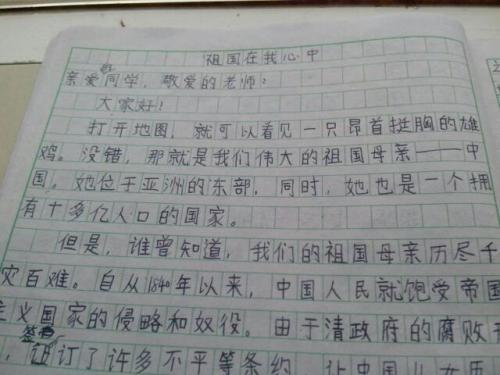 祖国在我心中
亲爱的同学，敬爱的老师：
大家好！
打开地图，就可以看见一只昂首挺胸的雄
鸡。没错，那就是我们伟大的祖国母亲——中
国。她位于亚洲的东部，同时，她也是一个拥
有十多亿人口的国家。
但是，谁曾知道，我们的祖国母亲历尽千
灾百难。自从1840年以来，中国人民就饱受帝国
主义国家的侵略和奴役。由于清政府的腐败
，签订了许多不平等条约，让中国儿女